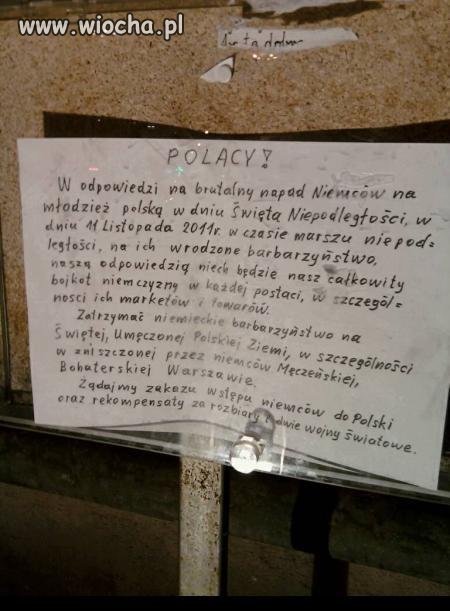 www.wiocha.pl
POLACY!
W odpowiedzi na brutalny napad Niemców na
młodzież polską w dniu Święta Niepodległości, w
dniu 11 Listopada 2011r. w czasie marszu niepod=
ległości, na ich wrodzone barbarzyństwo,
naszą odpowiedzią niech będzie nasz całkowity
bojkot niemczyzny w każdej postaci, w szczegól=
ności ich marketów i towarów.
Zatrzymać niemieckie barbarzyństwo na
Świętej, Umęczonej Polskiej Ziemi, w szczególności
w zniszczonej przez niemców Męczeńskiej,
Bohaterskiej Warszawie.
Żądajmy zakazu wstępu niemców do Polski
oraz rekompensaty za rozbiory i dwie wojny światowe.